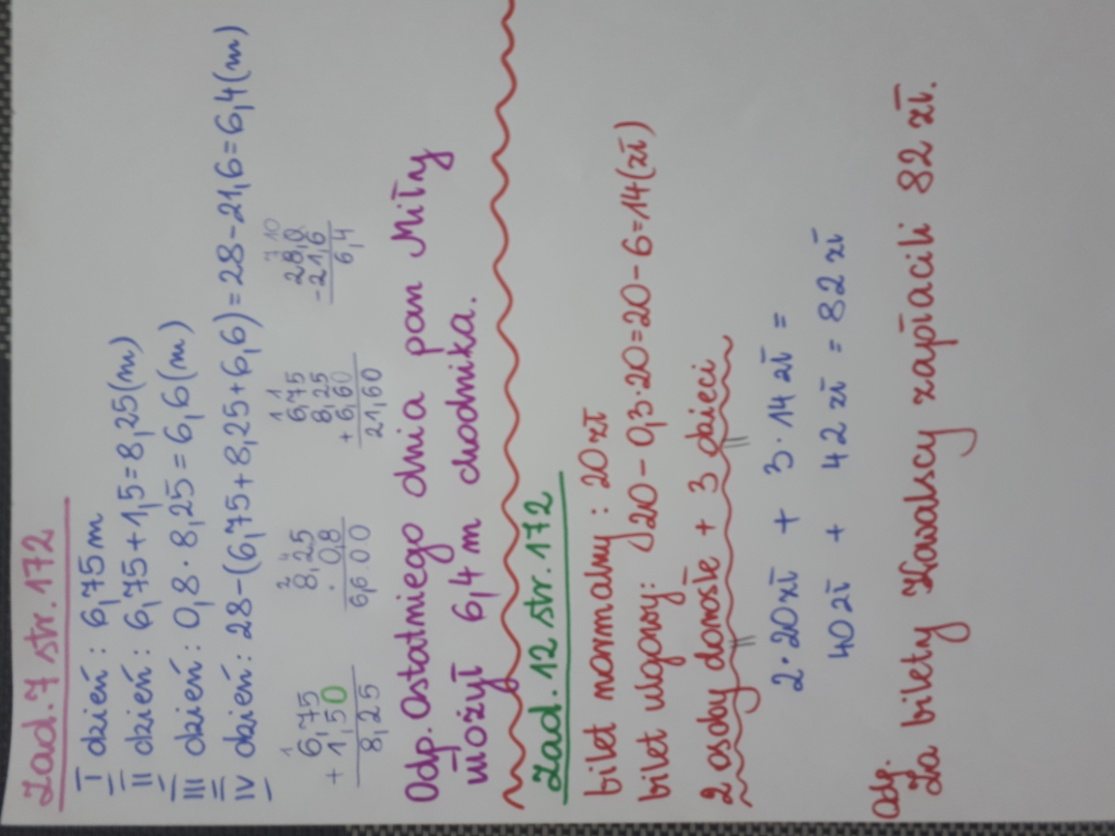 Zad. 7 str. 172
I dzień : 6,75 m
II dzień : 6,75 + 1,5 = 8,25 (m)
III dzień : 0,8 · 8,25 = 6,6 (m)
IV dzień : 28 - (6,75 + 8,25 + 6,6) = 28 - 21,6 = 6,4 (m)
1
6,75
+ 1,50
8,25
2 4
8,25
· 0,8
6,600
1 1
6,75
8,25
+ 6,60
21,60
7 10
28,0
- 21,6
6,4
Odp. Ostatniego dnia pan Miły
ułożył 6,4 m chodnika.
Zad. 12 str. 172
bilet normalny : 20 zł
bilet ulgowy: 20 - 0,3 · 20 = 20 - 6 = 14 (zł)
2 osoby dorosłe + 3 dzieci
2 · 20 zł + 3 · 14 zł =
40 zł + 42 zł = 82 zł
Odp.
Za bilety Kowalscy zapłacili 82 zł.